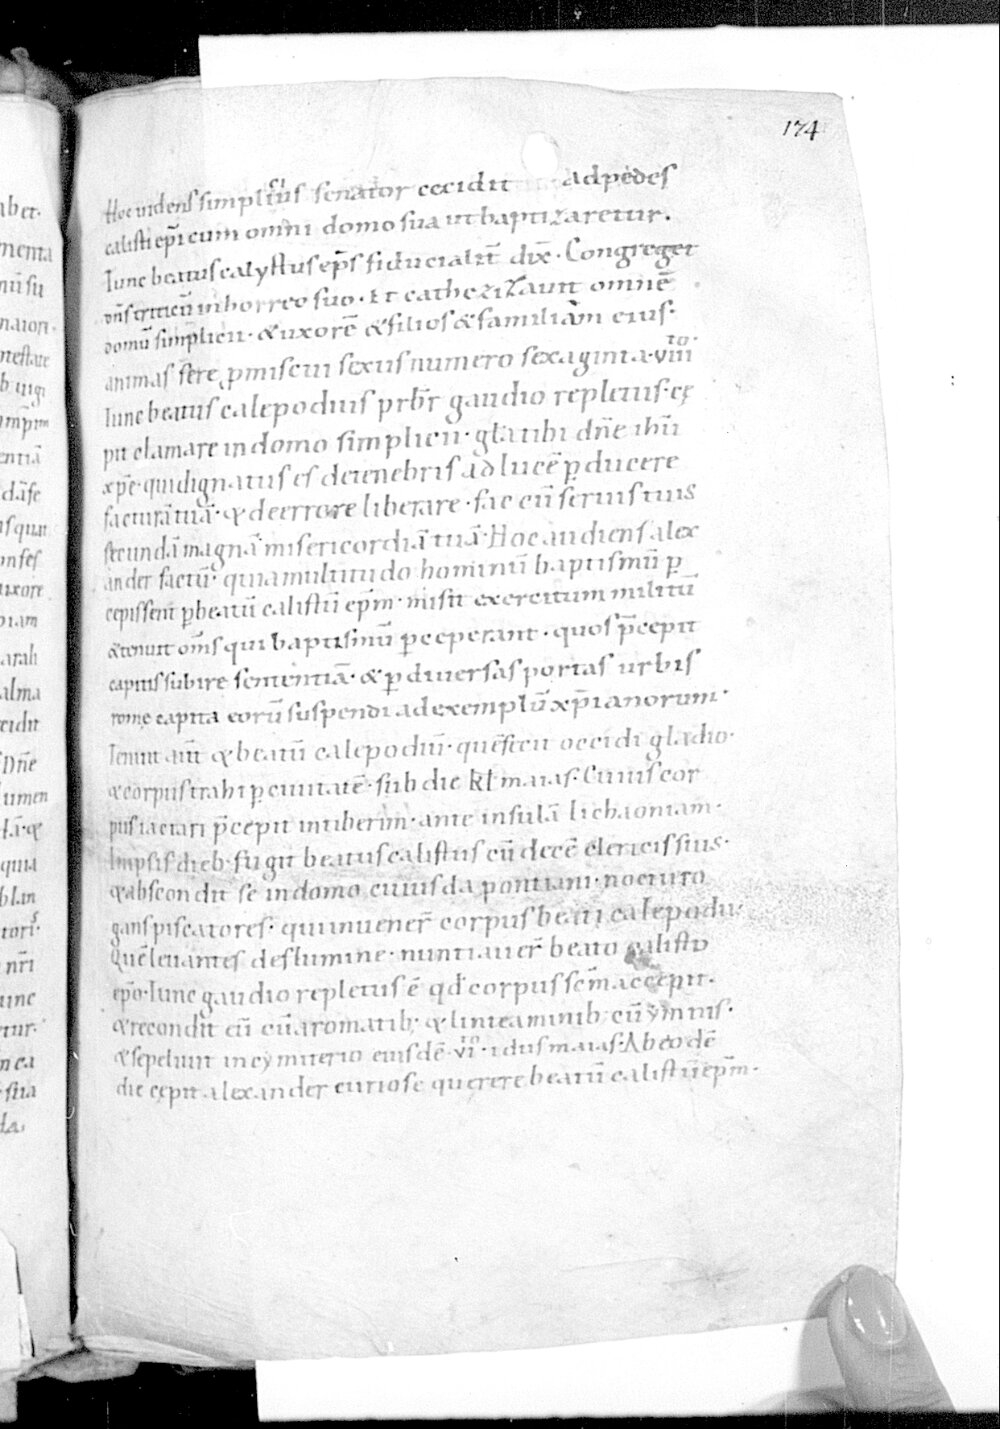 174
Hoc uidens simplitius senator cecidit ad pedes
calisti ep̄i cum omni domo sua ut baptizaretur.
Tunc beatus calystus ep̄s fiducialit̄ dix̄. Congreget
dn̄s triticū in horreo suo. Et cathezizauit omnē
domū simplicii. & uxorē & filios & familiam eius.
animas fere p̱miscui sexus numero sexaginta. viii
to
Tunc beatus calepodius prb̄r gaudio repletus. cę
pit clamare in domo simplicii. gl̄a tibi dn̄e ihū
xp̄e. qui dignatus es de tenebris ad lucē p̱ducere
facturā tuā. & de errore liberare. fac cū seruis tuis
secundā magnā misericordiā tuā. Hoc audiens alex
ander factū. quia multitudo hominū baptismū p̱
cepissent p̱ beatū calistū ep̄m. misit exercitum militū
& tenuit om̄s qui baptismū p̱ceperant. quos p̄cepit
capitis subire sententiā. & p̱ diuersas portas urbis
romę capita eorū suspendi ad exemplū xp̄ianorum.
Tenuit aut̄ & beatū calepodiū. quē fecit occidi gladio.
& corpus trahi p̱ ciuitatē. sub die kl̄ maias. Cuius cor
pus iactari p̄cepit in tiberim. ante insulā lichaoniam.
Impsis dieb. fugit beatus calistus cū decē clericis suis.
& abscondit se in domo cuiusda pontiani. nocturo
gans piscatores. qui inuener̄ corpus beati calepodii.
Quē leuantes de flumine. nuntiauer̄ beato calisto
ep̄o. Tunc gaudio repletus ē qd̄ corpus sc̄m accepit.
& recondit cū cū aromatib; & linteaminib; cū ymnis.
& sepeliuit in cymiterio eiusdē. vi. idus maias. Ab eo dē
die cępit alexander curiose querere beatū calistū ep̄m.